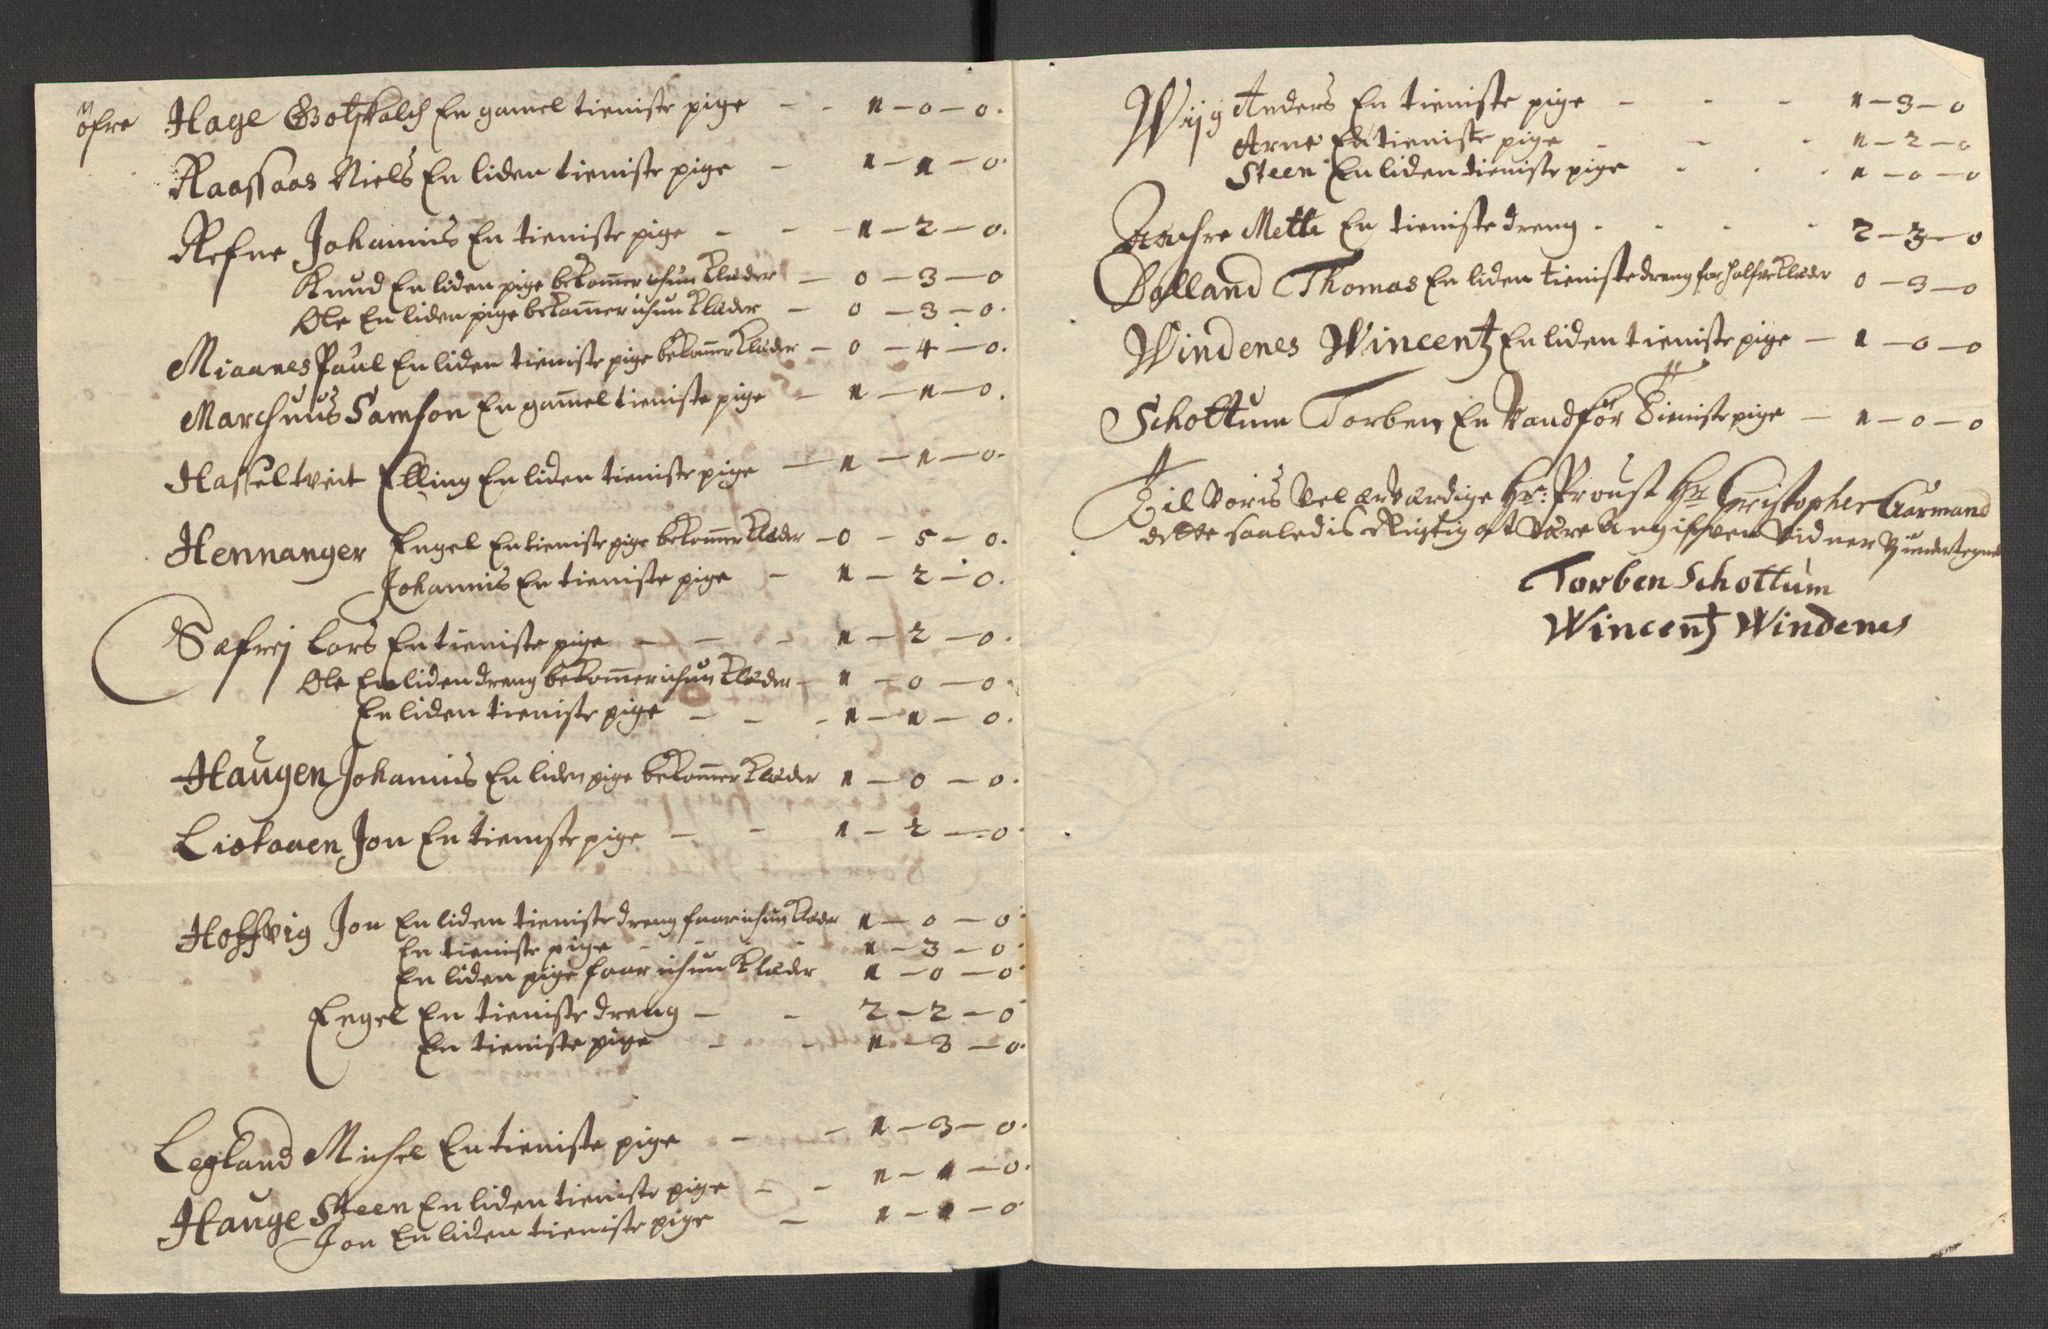 öfre Hage Gotskalch En gamel tieniste pige - - 1 - 0 - 0.
Raassaas Niels En liden tieniste pige - 1 - 1 - 0.
Refne Johannis En tieniste pige - - - 1 - 2 - 0.
Knud En liden pige bekom̄er ichun klæder - 0 - 3 - 0
Ole En liden pige bekom̄er ichun klæder - 0 - 3 - 0.
Miaanes Paul En liden tieniste pige bekom̄er klæder - 0 - 4 - 0.
Marchuus Samson En gam̄el tieniste pige - 1 - 1 - 0.
Hasseltveit Elling En liden tieniste pige - 1 - 1 - 0.
Hennanger Engel En tieniste pige bekom̄er klæder - 0 - 5 - 0.
Johannis En tieniste pige - 1 - 2 - 0.
Sæfrej Lars En tieniste pige - - - 1 - 2 - 0.
Ole En liden dreng bekom̄er ichun klæder - 1 - 0 - 0.
En liden tieniste pige - - - 1 - 1 - 0.
Haugen Johannis En liden pige bekom̄er klæder 1 - 0 - 0.
Liotaaen Jon En tieniste pige - - 1 - 2 - 0
Hoffvig Jon En liden tieniste dreng faar ichun klæder 1 - 0 - 0
En tieniste pige - - - 1 - 3 - 0
En liden pige faar ichun klæder 1 - 0 - 0
Engel En tieniste dreng - - 2 - 2 - 0
En tieniste pige - - 1 - 3 - 0.
Legland Michel En tieniste pige - - 1 - 3 - 0.
Hauge Steen En liden tieniste pige - - 1 - 1 - 0.
Jon En liden tieniste pige - 1 - 1 - 0
Wijg Anders En tieniste pige - - - 1 - 3 - 0
Arne En tieniste pige - - - 1 - 2 - 0
Steen En liden tieniste pige - - - 1 - 0 - 0
Mette En tieniste dreng - - - 2 - 3 - 0
Dalland Thomas En liden tieniste dreng for halfve klæder 0 - 3 - 0
Windenes Wincentz En liden tieniste pige - 1 - 0 - 0
Schottum Torben En vandför Tieniste pige - 1 - 0 - 0
Til voris Vel ærværdige Hr: Proust Hr Christopher Garmand
dette saaledis Rigtig at være Angifven vidner Vj undertegnede
Torben Schottum
Wincentz Windenes